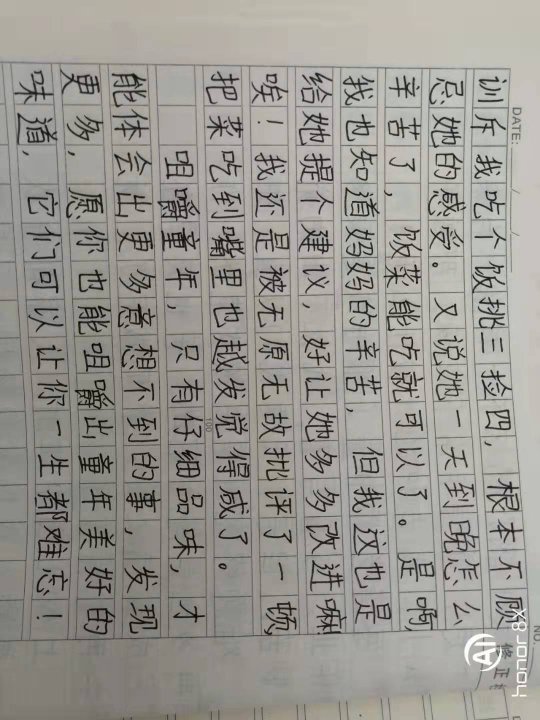 DATE:
NO.
训斥我吃个饭挑三捡四，根本不顾
忌她的感受。又说她一天到晚怎么
辛苦了，饭菜能吃就可以了。是啊，
我也知道妈妈的辛苦，但我这也是
给她提个建议，好让她多多改进嘛，
唉！我还是被无原无故批评了一顿，
把菜吃到嘴里也越发觉得咸了。
咀嚼童年，只有仔细品味，才
能体会出更多意想不到的事，发现
更多，愿你也能咀嚼出童年美好的
味道，它们可以让你一生都难忘！
100
AI
honor 8X